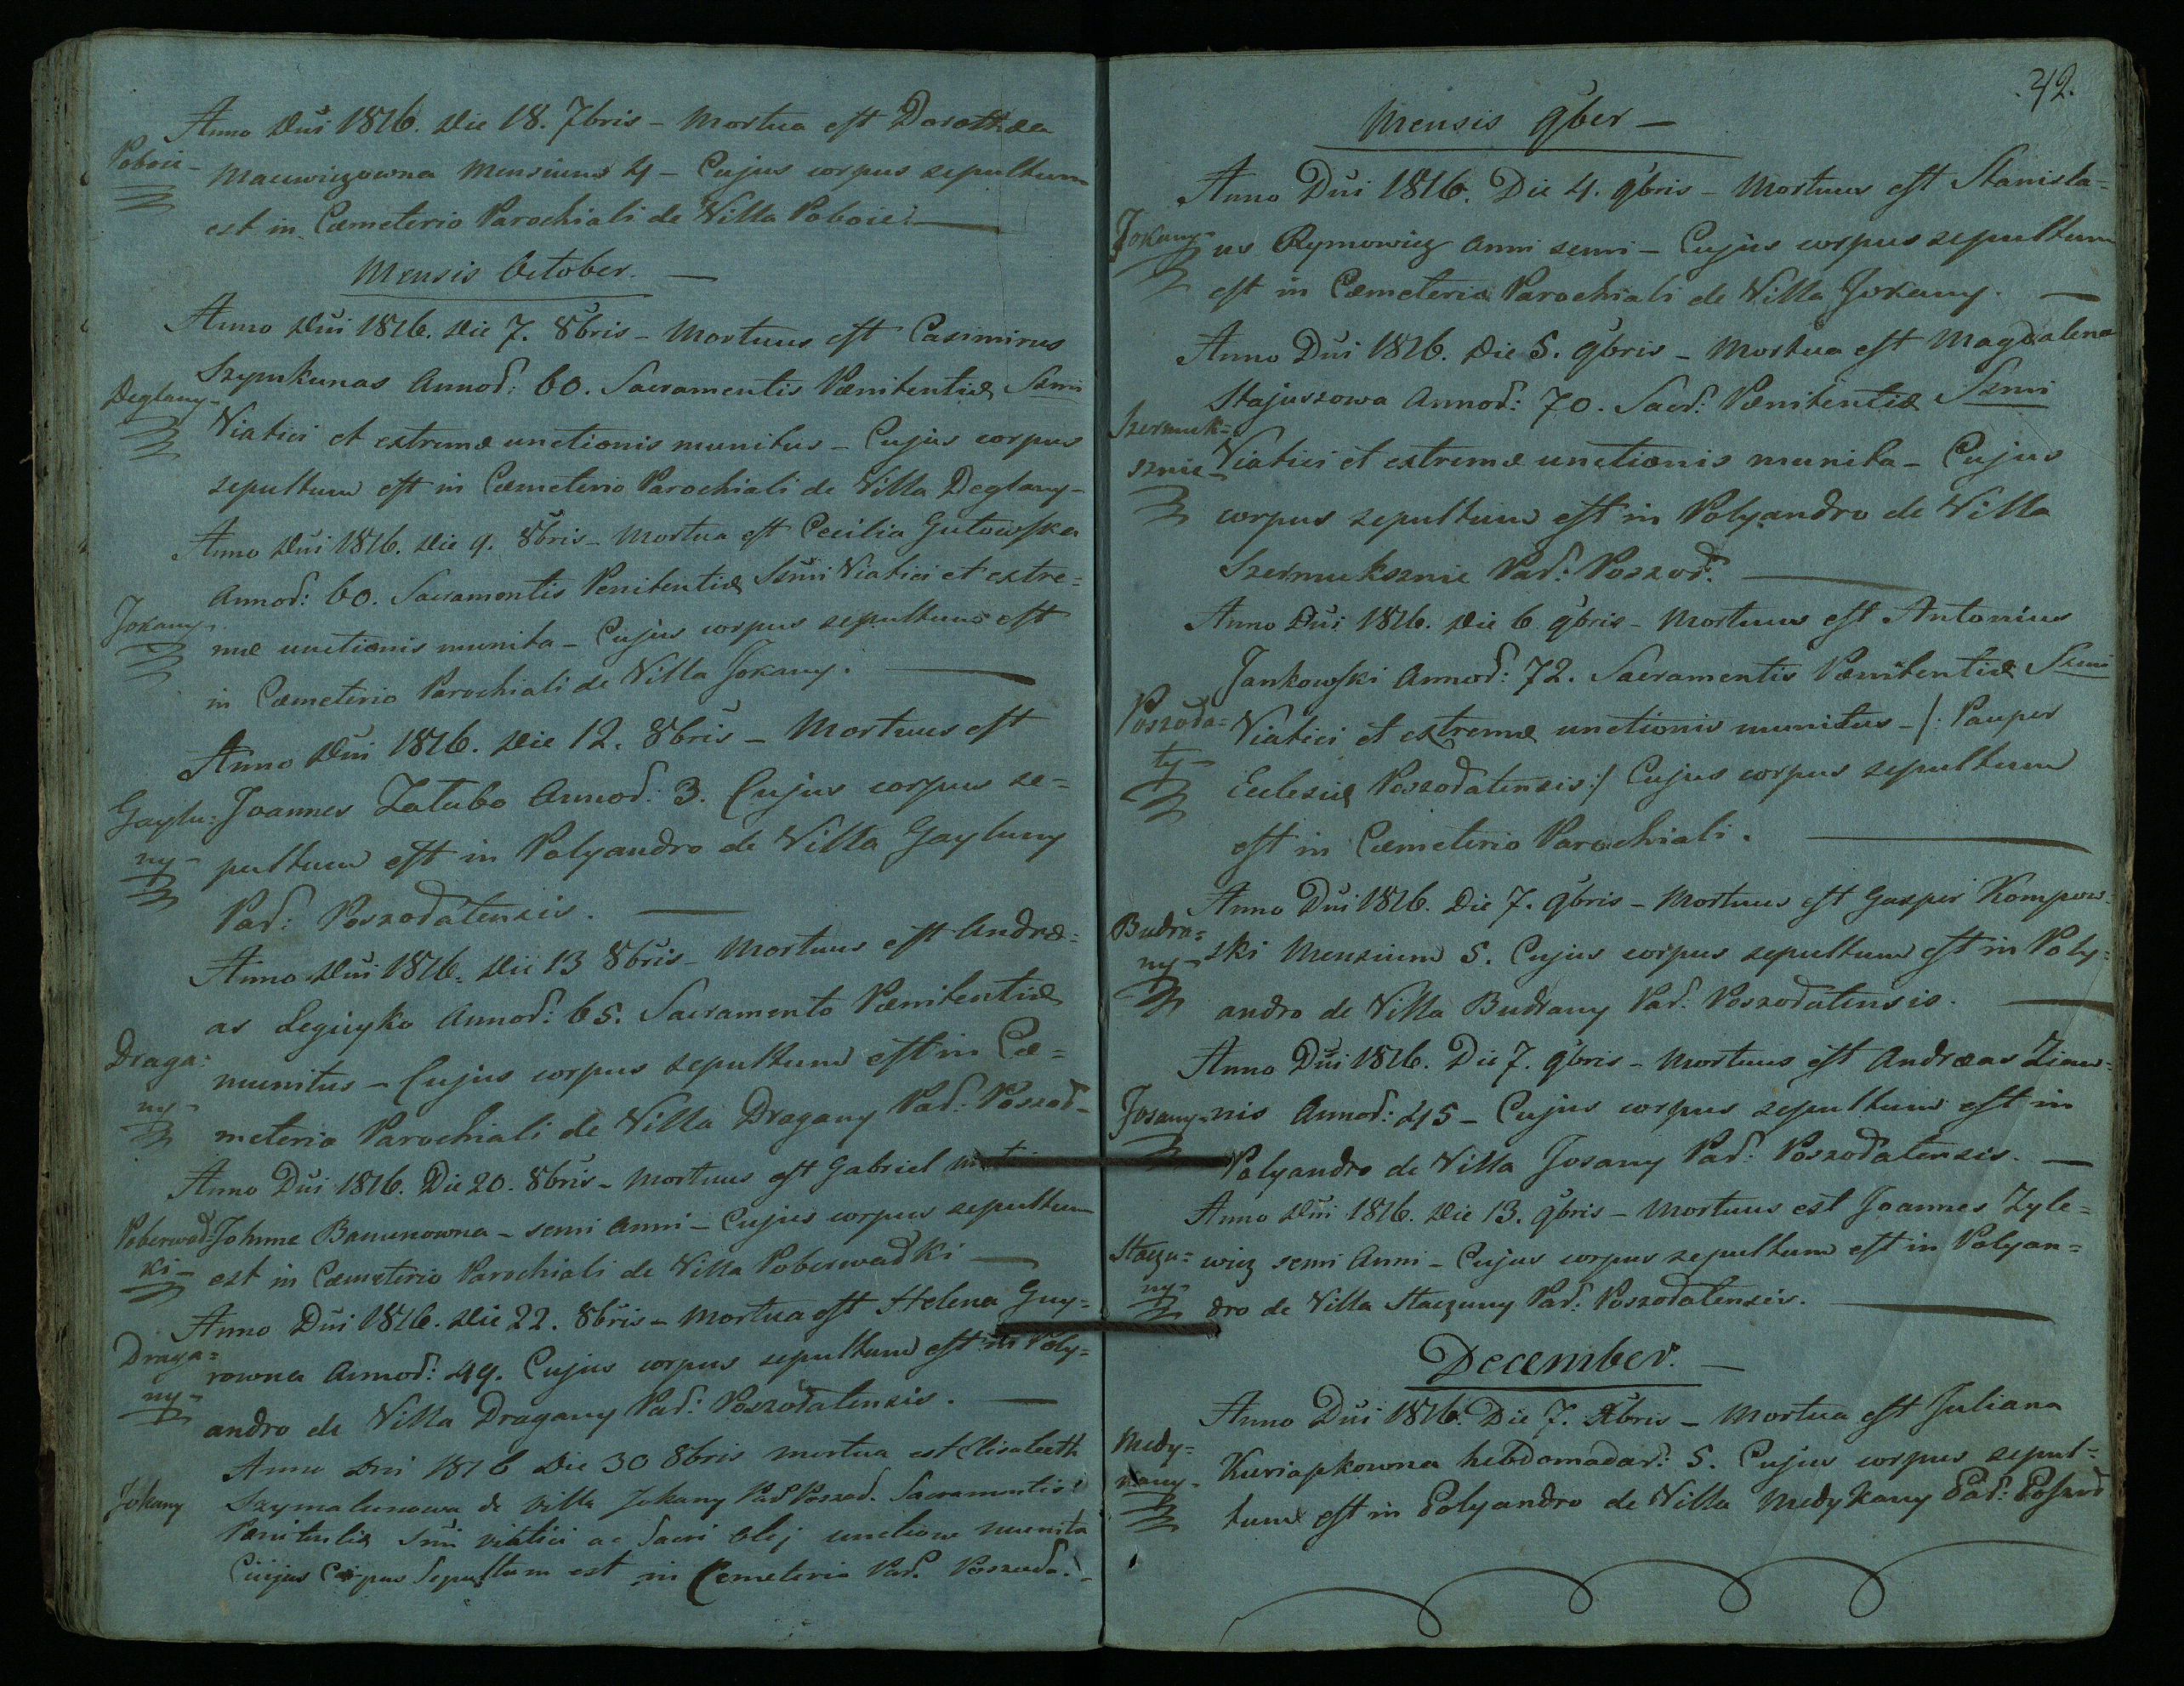 Anno Dni 1816. Die 18. 7bris - Mortua est Dorothæa
Poboie - Macewiczowna Mensium 4 - Cujus corpus sepultum
est in Cæmeterio Parochiali de Villa Poboie.
Mensis October. -
Anno Dni 1816. Die 7. 8bris - Mortuus est Casimirus
Szymkunas Annor: 60. Sacramentis Pænitentiæ Ssmi
Deglany - Viatici et extremæ unctionis munitus - Cujus corpus
sepultum est in Cæmeterio Parochiali de Villa Deglany -
Anno Dni 1816. Die 9. 8bris - Mortua est Cecilia Gutowska
Annor: 60. Sacramentis Penitentiæ Ssmi Viatici et extre=
Jokany - mæ unctionis munita - Cujus corpus sepultum est
in Cæmeterio Parochiali de Villa Jokany.
Anno Dni 1816. Die 12. 8bris - Mortuus est
Gaylu= Joannes Zatubo Annor: 3. Cujus corpus se=
ny - pultum est in Polyandro de Villa Gayluny
Par: Poszodatensis.
Anno Dni 1816. Die 13 8bris - Mortuus est Andræ=
as Legieyko Annor: 65. Sacramento Pænitentiæ
Draga= munitus - Cujus corpus sepultum est in Cæ=
ny - meterio Parochiali de Villa Dragany Par: Poszod -
Anno Dni 1816. Die 20. 8bris - Mortuus est Gabriel
Poberwad= Johnne Banunowna - semi Anni - Cujus corpus sepultum
ki - est in Cæmeterio Parochiali de Villa Poberwadki -
Anno Dni 1816. Die 22. 8bris - Mortua est Helena Guy=
Draga= rowna Annor: 49. Cujus corpus sepultum est in Poly=
ny - andro de Villa Dragany Par: Poszodatensis. -
Anno Dni 1816 Die 30 8bris mortua est Elisabeth
Jokany Szymalunowa de villa Jokany Par Poszod. Sacramentis
Panitentiæ Smi viatici ac Sacri Olej unctione munita
Cuijus Corpus Sepultum est in Cemeterio Par. Poszoda.
42.
Mensis 9ber -
Anno Dni 1816. Die 4. 9bris - Mortuus est Stanisla=
Jokany - us Rymowicz Anni semi - Cujus corpus sepultum
est in Cæmeterio Parochiali de Villa Jokany. -
Anno Dni 1816. Die 5. 9bris - Mortua est Magdalena
Stajuszowa Annor: 70. Sacr: Pænitentiæ Ssmi
Szermuk=
sznie - Viatici et extremæ unctionis munita - Cujus
corpus sepultum est in Polyandro de Villa
Szermuksznie Par: Poszod:
Anno Dni 1816. Die 6 9bris - Mortuus est Antonius
Jankowski Annor: 72. Sacramentis Pænitentiæ Ssmi
Poszoda= Viatici et extremæ unctionis munitus - /: Pauper
ty - Ecclesiæ Poszodatensis :/ Cujus corpus sepultum
est in Cæmeterio Parochiali.
Anno Dni 1816. Die 7. 9bris - Mortuus est Gasper Kompow=
Budra= ski Mensium 5. Cujus corpus sepultum est in Poly=
ny - andro de Villa Budrany Par: Poszodatensis.
Anno Dni 1816. Die 7. 9bris - Mortuus est Andræas Ziew=
Josany - nis Annor: 45 - Cujus corpus sepultum est in
Polyandro de Villa Josany Par: Poszodatensis. -
Anno Dni 1816. Die 13. 9bris - Mortuus est Joannes Zyle=
Staczu= wicz semi Anni - Cujus corpus sepultum est in Polyan=
ny - dro de Villa Staczuny Par: Poszodatensis.
December. -
Anno Dni 1816. Die 7. Xbris - Mortua est Juliana
Medy= Kuriapkowna hebdomadar: 5. Cujus corpus sepul=
kany - tum est in Polyandro de Villa Medykany Par: Poszod